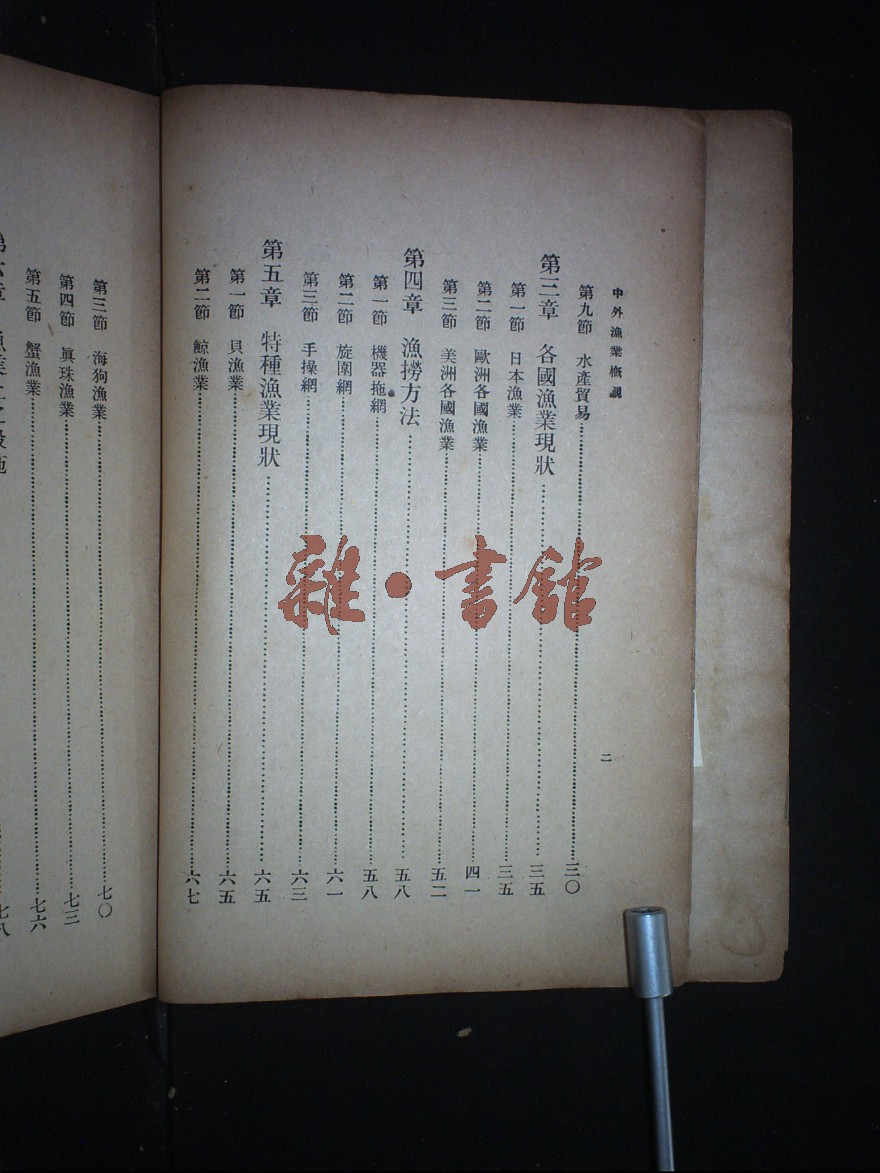 中外漁業概說
二
第九節　水產貿易……三〇
第三章　各國漁業現狀……三五
第一節　日本漁業……三五
第二節　歐洲各國漁業……四一
第三節　美洲各國漁業……五二
第四章　漁撈方法……五八
第一節　機器拖網……五八
第二節　旋圍網……六一
第三節　手操網……六三
第五章　特種漁業現狀……六五
第一節　貝漁業……六五
第二節　鯨漁業……六七
第三節　海狗漁業……七〇
第四節　眞珠漁業……七三
第五節　蟹漁業……七六
七八
雜・書館